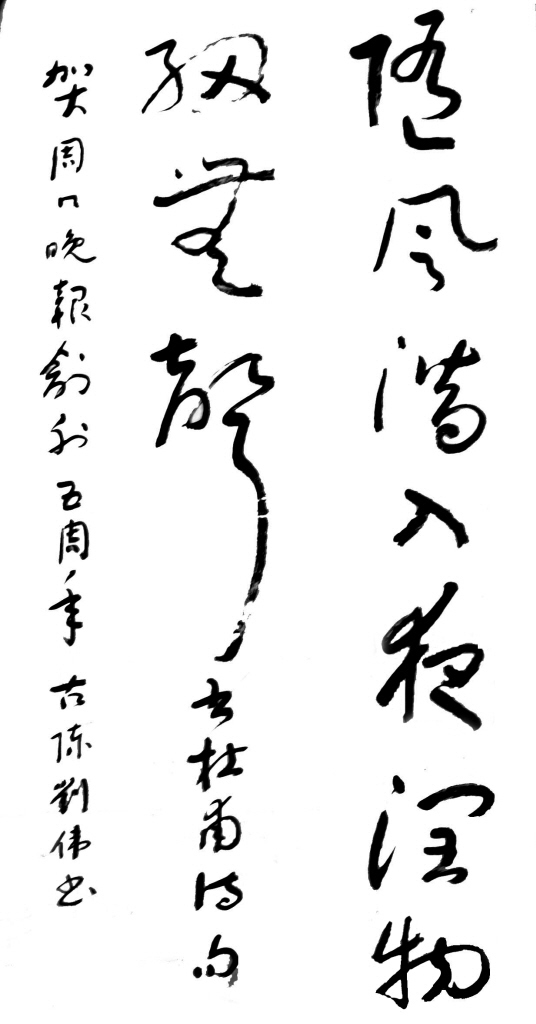 随风潜入夜润物
细無聲 去杜甫诗句
贺周口晚報創刊五周年 古陈劉伟书